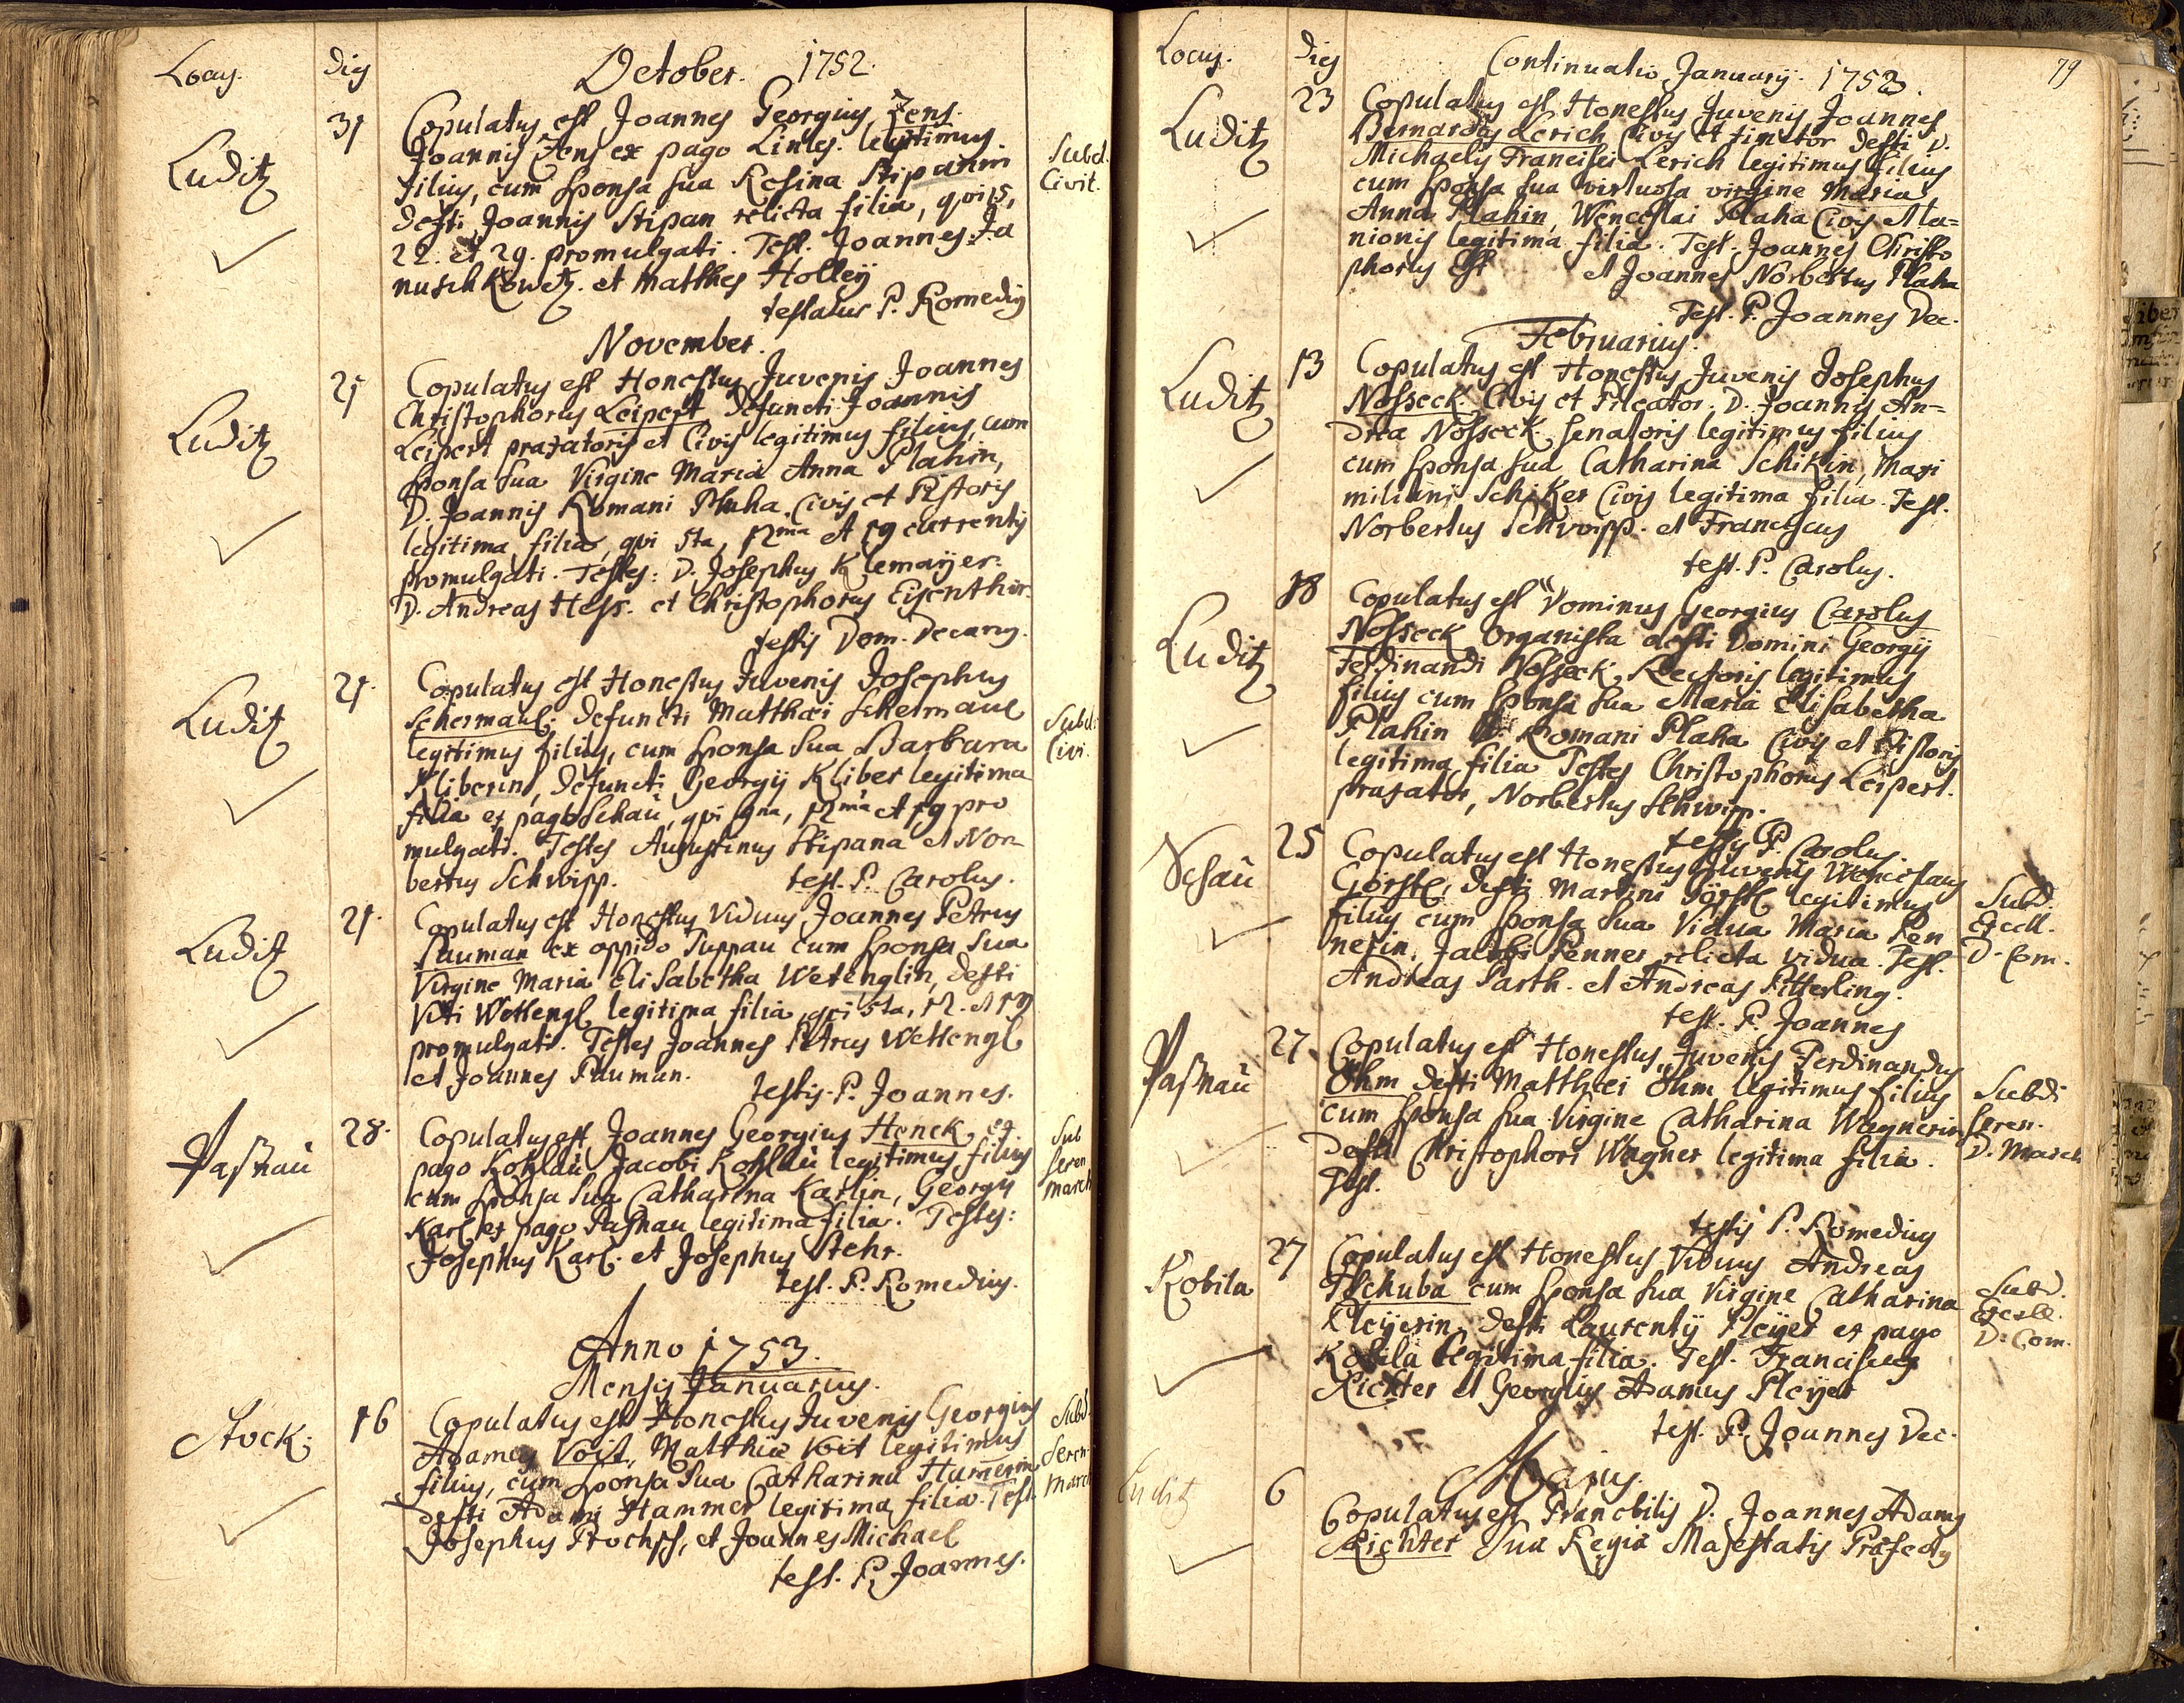 Locus. Dies October. 1752.
Luditz 31 Copulatus est Joannes Georgius Zens.
Joannis Zens ex pago Lintes. legitimus
filius, cum sponsa sua Rosina Stipanin
defti Joannis Stipan relicta filia, qvi 15,
22. et 29. promulgati. Test. Joannes Ja
nuschkowetz. et Matthes Holleÿ
testatur P. Romedius
Subd.
Civit.
November.
Luditz 21 Copulatus est Honestus Juvenis Joannes
Christophorus Leipert defuncti Joannis
Leipert praxatoris et Civis legitimus filius, cum
sponsa sua Virgine Maria Anna Plahin,
D. Joannis Romani Plaha Civis et Pistoris
legitima filia, qvi 5ta, 12ma et 19 currentis
promulgati. Testes: D. Josephus Klemaÿer.
D. Andreas Hess. et Christophorus Eisenthir.
testis Dom. Decanus.
Luditz 21. Copulatus est Honestus Juvenis Josephus
Schermaul. defuncti Matthæi Schermaul
legitimus filius, cum sponsa sua Barbara
Kliberin, defuncti Georgÿ Kliber legitima
filia ex pago Schaŭ, qvi 5na, 12ma et 19 pro
mulgati. Testes Augustinus Stipana et Nor
bertus Schwipp. test. P. Carolus.
Subd:
Civi.
Luditz 21. Copulatus est Honestus Viduus Joannes Petrus
Pauman ex oppido Puppau cum sponsa sua
Virgine Maria Elisabetha Wetenglin, defti
Viti Wettengl legitima filia, qvi 5ta, 12. et 19
promulgati. Testes Joannes Petrus Wettengl
et Joannes Pauman.
testis. P. Joannes.
Paßnaŭ 28. Copulatus est Joannes Georgius Henck, ex
pago Kohlaŭ Jacobi Kohlaŭ legitimus filius
cum sponsa sua Catharina Karlin, Georgÿ
Karl ex pago Paßnau legitima filia. Testes:
Josephus Karl. et Josephus Stehr.
test. P. Romedius.
Sub
Seren
March
Anno 1753.
Mensis Januarius.
Stock. 16 Copulatus est Honestus Juvenis Georgius
Adamus Voit, Matthiæ Voit legitimus
filius, cum sponsa sua Catharina Hamerin
defti Adami Hammer legitima filia. Test.
Josephus Prochsch, et Joannes Michael
test. P. Joannes.
Subd.
Seren.
March
Locus. Dies Continuatio Januarÿ. 1753. 79
Luditz 23 Copulatus est Honestus Juvenis Joannes
Bernardus Lerich Civis et tinctor defti D.
Michaelis Francisci Lerich legitimus filius
cum sponsa sua virtuosa virgine Maria
Anna Plahin, Wenceslai Plaha Civis et la=
nionis legitima filia. Test. Joannes Christo
phorus Est et Joannes Norbertus Plaha
Test. P. Joannes Dec.
Februarius.
Luditz 13 Copulatus est Honestus Juvenis Josephus
Nosseck Civis et Pileator. D. Joannis An=
drea Nosseck senatoris legitimus filius
cum sponsa sua Catharina Schikin, Maxi
miliani Schiker Civis legitima filia. Test.
Norbertus Schwipp. et Franciscus
test. P. Carolus.
Luditz 18 Copulatus est Dominus Georgius Carolus
Nosseck Organista defti Domini Georgÿ
Ferdinandi Nosseck, Rectoris legitimus
filius cum sponsa sua Maria Elisabetha
Plahin Romani Plaha Civis et Pistoris
legitima filia Testes Christophorus Leipert.
praxator, Norbertus Schwipp.
testis P. Carolus.
Schaŭ 25 Copulatus est Honestus Juvenis Wenceslaus
Görstl, defti Martini Görstl legitimus
filius cum sponsa sua Vidua Maria Pen
nerin, Jacobi Penner relicta vidua. Test.
Andreas Parth. et Andreas Pitterling.
test. P. Joannes
Subd.
Excell.
D. Com.
Paßnaŭ 27. Copulatus est Honestus Juvenis Ferdinandus
Öhm defti Matthæi Öhm legitimus filius
cum sponsa sua Virgine Catharina Wagnerin
defti Christophori Wagner legitima filia.
Test.
testis P. Romedius
Subdi
Seren.
D. March
Kobila 27 Copulatus est Honestus Viduus Andreas
Tschuba cum sponsa sua Virgine Catharina
Pleÿerin, defti Laurentÿ Pleÿer ex pago
Kobila legitima filia. Test. Franciscus
Richter et Georgius Adamus Pleÿer
test. P. Joannes Dec.
Subd.
Excell.
D. Com.
Majus.
Luditz 6 Copulatus est Prænobilis D. Joannes Adamus
Richter Suæ Regiæ Majestatis Præfectus